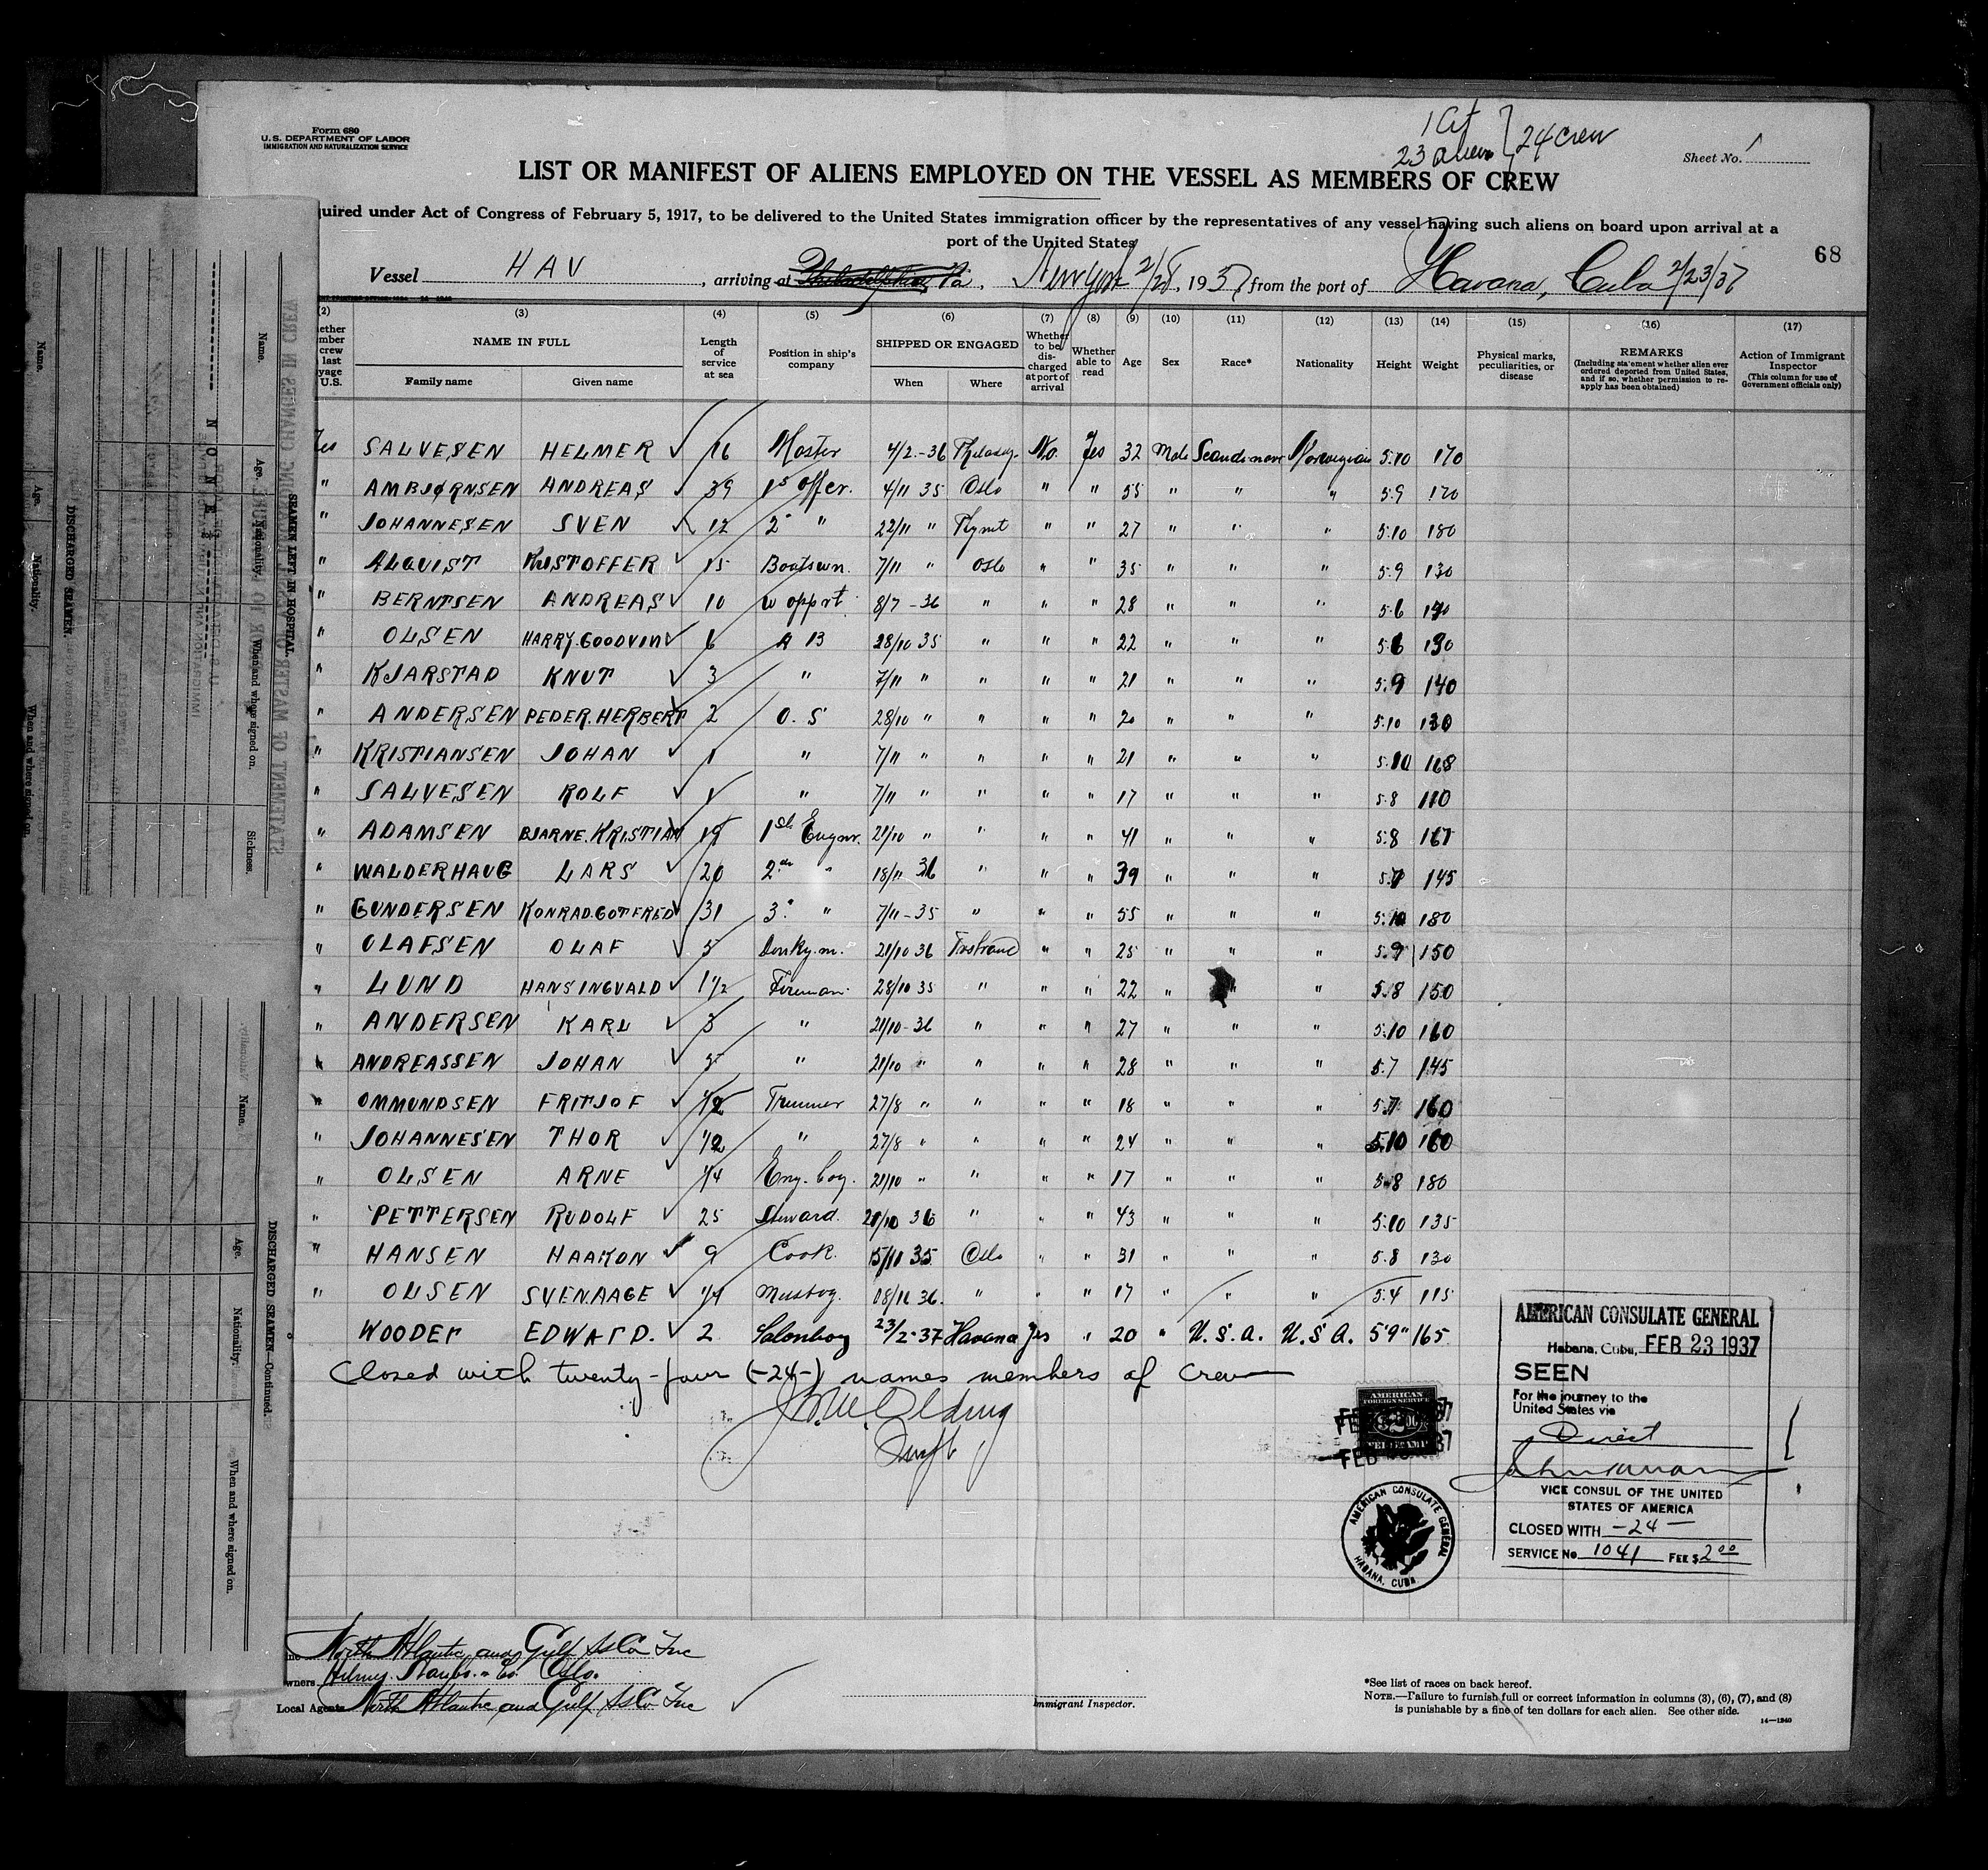 Form 680
U. S. DEPARTMENT OF LABOR
IMMIGRATION AND NATURALIZATION SERVICE
1 Cit
23 aliens } 24 crew
Sheet No. 1
LIST OR MANIFEST OF ALIENS EMPLOYED ON THE VESSEL AS MEMBERS OF CREW
quired under Act of Congress of February 5, 1917, to be delivered to the United States immigration officer by the representatives of any vessel having such aliens on board upon arrival at a
port of the United States
68
Vessel HAV, arriving at Philadelphia Pa. New York 2/28, 1937 from the port of Havana, Cuba 2/23/37
(2) (3) (4) (5) (6) (7) (8) (9) (10) (11) (12) (13) (14) (15) (16) (17)
NAME IN FULL
Family name Given name
Length of service at sea
Position in ship's company
SHIPPED OR ENGAGED
When Where
Whether to be discharged at port of arrival
Whether able to read
Age
Sex
Race*
Nationality
Height
Weight
Physical marks, peculiarities, or disease
REMARKS
(Including statement whether alien ever ordered deported from United States, and if so, whether permission to reapply has been obtained)
Action of Immigrant Inspector
(This column for use of Government officials only)
Yes SALVESEN HELMER ✓ 16 Master 4/2.-36 No. Yes 32 Male Scandinav Norwegian 5.10 170
" AMBJØRNSEN ANDREAS ✓ 39 1st offer. 4/11 35 Oslo " " 55 " " " 5.9 170
" JOHANNESEN SVEN ✓ 12 2" " 22/11 " " " 27 " " " 5.10 180
" ALQUIST KRISTOFFER ✓ 15 Boatswn. 7/11 " Oslo " " 35 " " " 5.9 130
" BERNTSEN ANDREAS ✓ 10 8/7 -36 " " " 28 " " " 5.6
" OLSEN HARRY.GOODVIN ✓ 6 A B 28/10 35 " " " 22 " " " 5.6
" KJARSTAD KNUT ✓ 3 " 7/11 " " " " 21 " " " 5.9 140
" ANDERSEN PEDER.HERBERT ✓ 2 O. S 28/10 " " " " 20 " " " 5.10 130
" KRISTIANSEN JOHAN ✓ 1 " 7/11 " " " " 21 " " " 5.10 168
" SALVESEN ROLF ✓ 1 " 7/11 " " " " 17 " " " 5.8 110
" ADAMSEN BJARNE.KRISTIAN 19 1st Engnr. 21/10 " " " " 41 " " " 5.8
" WALDERHAUG LARS ✓ 20 2nd " 18/11 36 " " " 39 " " " 5.7 145
" GUNDERSEN KONRAD.GOTFRED ✓ 31 3" " 7/11-35 " " " 55 " " " 5.10 180
" OLAFSEN OLAF ✓ 5 Donky.m. 21/10 36 " " 25 " " " 5.9 150
" LUND HANS INGVALD ✓ 1 1/2 Fireman 28/10 35 " " " 22 " " " 5.8 150
" ANDERSEN KARL ✓ 3 " 21/10-36 " " " 27 " " " 5.10 160
" ANDREASSEN JOHAN ✓ 5 " 21/10 " " " " 28 " " " 5.7 145
" OMMUNDSEN FRITJOF ✓ 1/2 Trimmer 27/8 " " " " 18 " " " 5.7 160
" JOHANNESEN THOR ✓ 1/2 " 27/8 " " " " 24 " " " 5.10 160
" OLSEN ARNE ✓ 1/4 Eng. boy. 21/10 " " " " 17 " " " 5.8 180
" PETTERSEN RUDOLF ✓ 25 Steward. 21/10 36 " " " 43 " " " 5.10 135
" HANSEN HAAKON ✓ 9 Cook. 15/11 35 Oslo " " 31 " " " 5.8 130
" OLSEN SVEN.AAGE ✓ 1/4 Messboy. 36. " " " 17 " " " 5.4 115
WOODEr EDWArD. ✓ 2 Salonboy 23/2-37 Havana Yes " 20 " U.S.A. U.S.A. 5'9" 165
Closed with twenty-four (-24-) names members of crew
AMERICAN CONSULATE GENERAL
Habana, Cuba, FEB 23 1937
SEEN
For the journey to the
United States via
Direct
VICE CONSUL OF THE UNITED
STATES OF AMERICA
CLOSED WITH -24-
SERVICE No. 1041 FEE $ 2 00
AMERICAN
FOREIGN SERVICE
AMERICAN CONSULATE GENERAL
HABANA, CUBA
North Atlantic and Gulf SS Co Inc
wners Oslo.
Local Agents North Atlantic and Gulf SS Co Inc ✓
Immigrant Inspector.
*See list of races on back hereof.
NOTE.—Failure to furnish full or correct information in columns (3), (6), (7), and (8)
is punishable by a fine of ten dollars for each alien. See other side.
14—1240
STATEMENT OF MASTER
SEAMEN LEFT IN HOSPITAL.
Name. Age. Nationality. When and where signed on. Sickness.
NONE
DISCHARGED SEAMEN.
Name. Age. Nationality. When and where signed on.
DISCHARGED SEAMEN—Continued.
Name. Age. Nationality. When and where signed on.